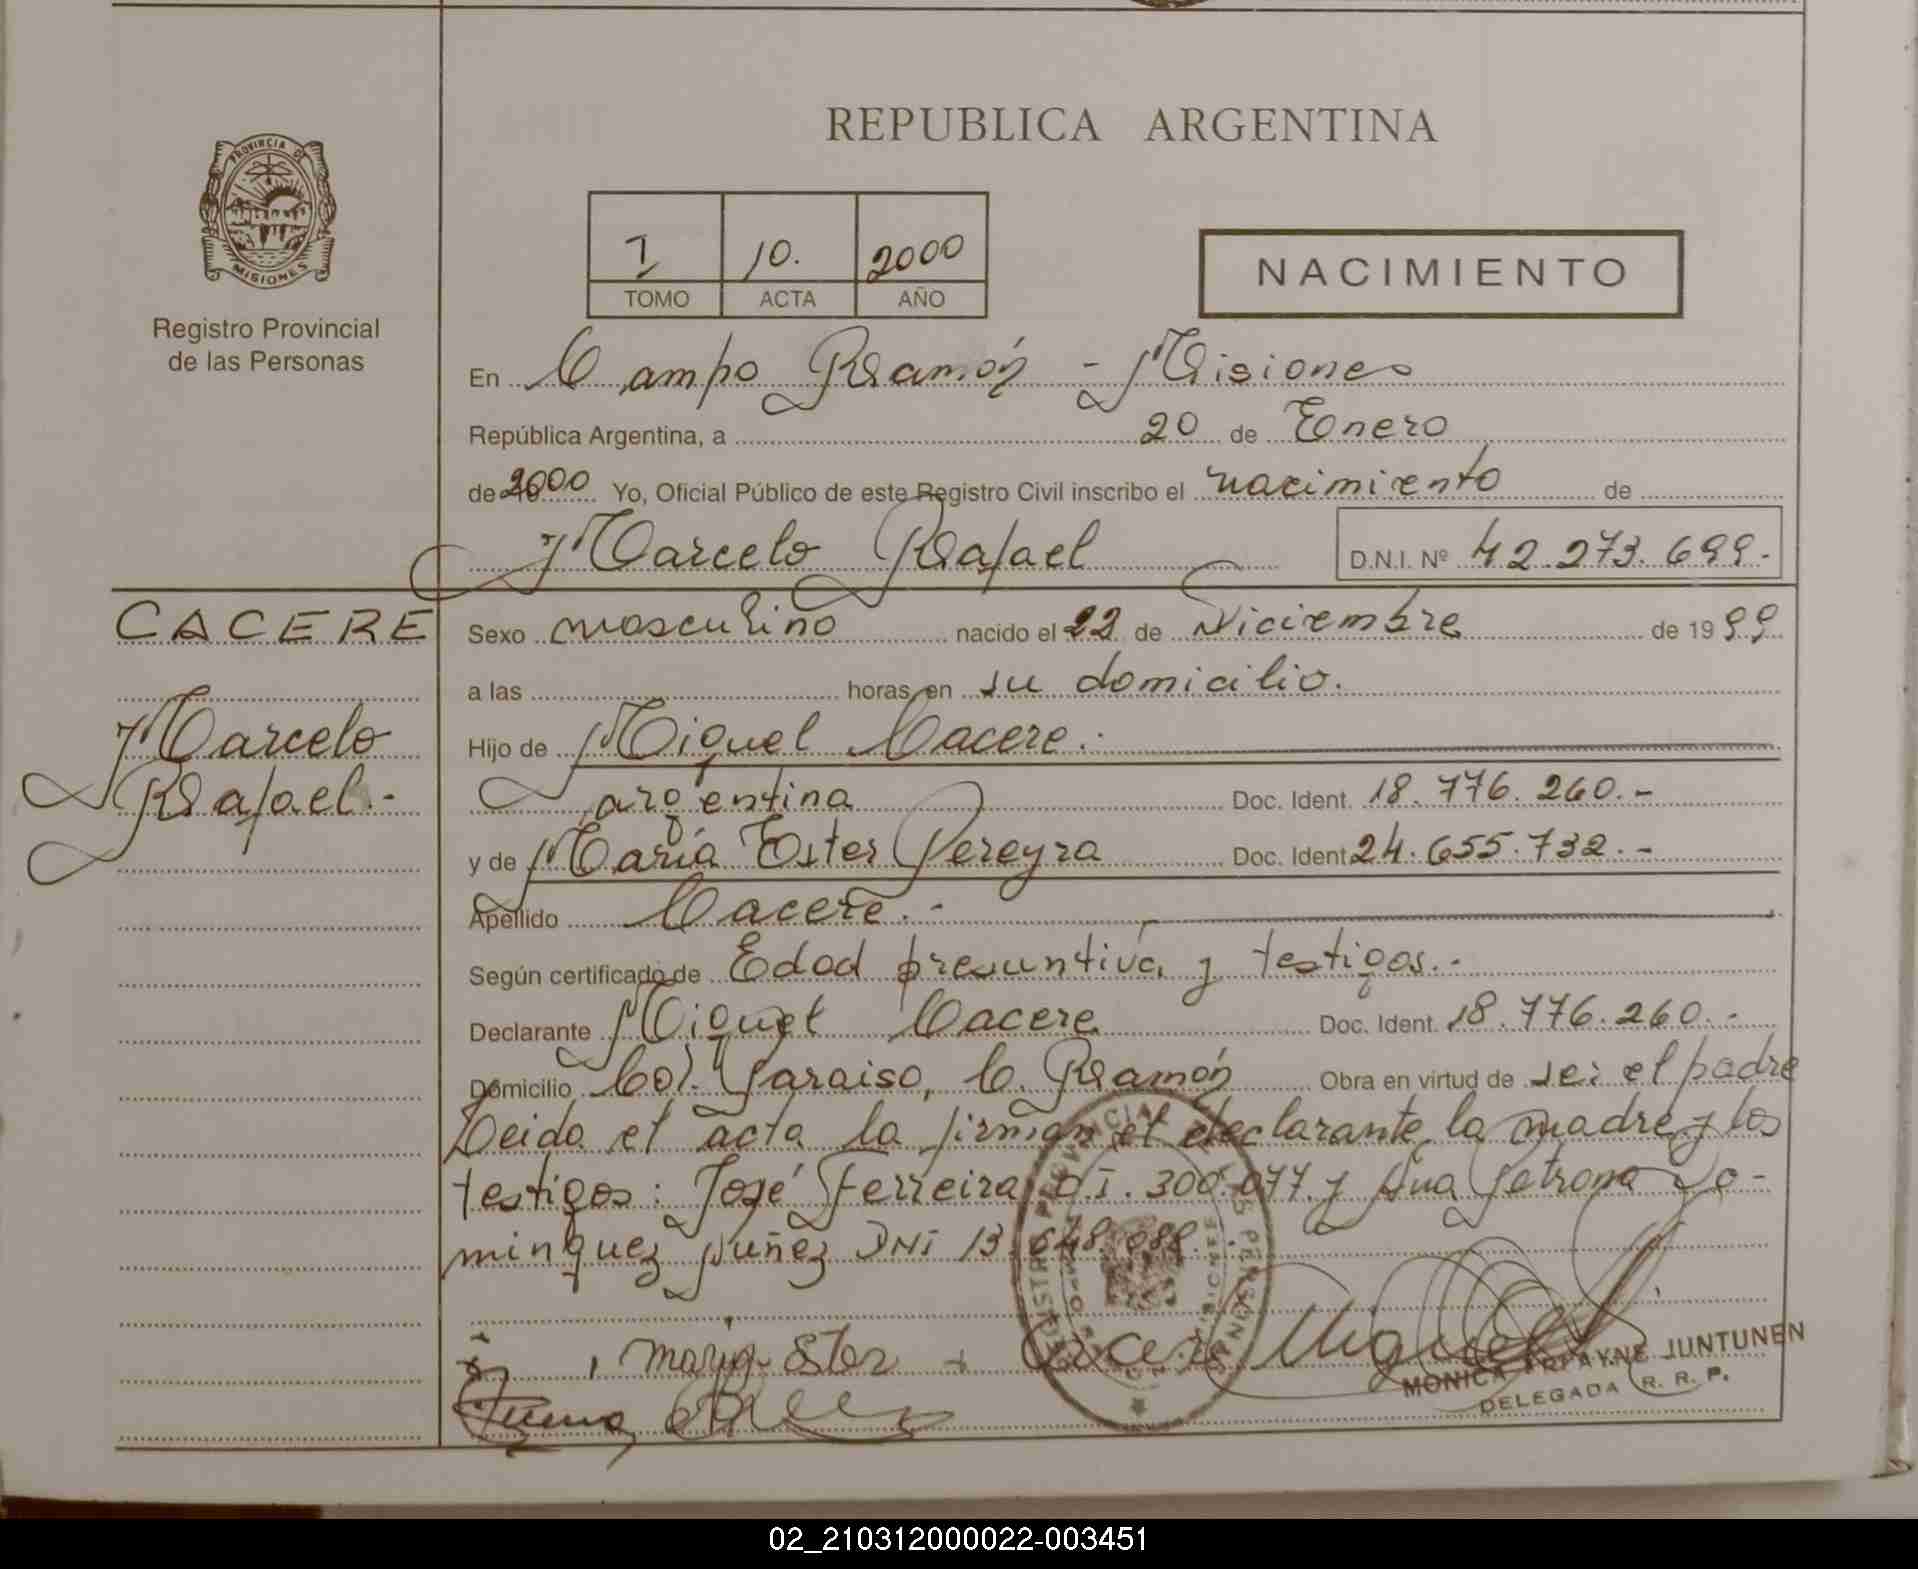 PROVINCIA DE
MISIONES
Registro Provincial
de las Personas
REPUBLICA ARGENTINA
I 10. 2000
TOMO ACTA AÑO
NACIMIENTO
En Campo Ramón - Misiones
República Argentina, a 20 de Enero
de 2000 Yo, Oficial Público de este Registro Civil inscribo el nacimiento de
Marcelo Rafael D.N.I. Nº 42.273.699.-
CACERE
Marcelo
Rafael.-
Sexo masculino nacido el 22 de Diciembre de 1999
a las horas en su domicilio.
Hijo de Miguel Cacere.-
argentina Doc. Ident. 18.776.260.-
y de María Ester Pereyra Doc. Ident 24.655.732.-
Apellido Cacere.-
Según certificado de Edad presuntiva y testigos.-
Declarante Miguel Cacere Doc. Ident. 18.776.260.-
Domicilio Col. Paraiso, C. Ramón Obra en virtud de ser el padre
Leida el acta la firman el declarante, la madre y los
testigos: José Ferreira D.I. 300.077 y Ana Petrona Do-
minguez Nuñez DNI 13.648.088.
Maria Ester Cacere Miguel
MONICA JUNTUNEN
DELEGADA R. R. P.
02_210312000022-003451